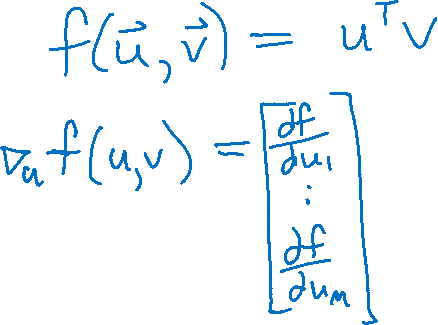 f(u⃗, v⃗) = uᵀv
∇ᵤf(u,v) = [∂f/∂u₁
⋮
∂f/∂uₘ]